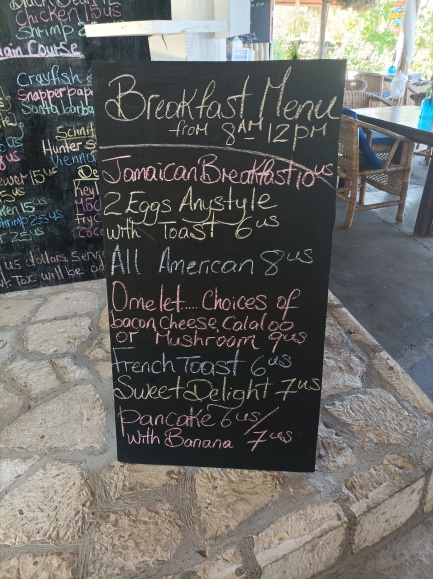 Chicken 15us
Shrimp 2
ain Course
Crayfish
Snapper pap
Santa barba
Schnit
Hunter s
Vienner
15us
De
Key
15us
25us
us dollars, Servi
Tax will be ad
Breakfast Menu
from 8AM 12PM
Jamaican Breakfast 10us
2 Eggs Anystyle
with Toast 6us
All American 8us
Omelet.... Choices of
bacon, Cheese, Calaloo
or Mushroom 9us
French Toast 6us
Sweet Delight 7us
Pancake 6us/
With Banana 7us